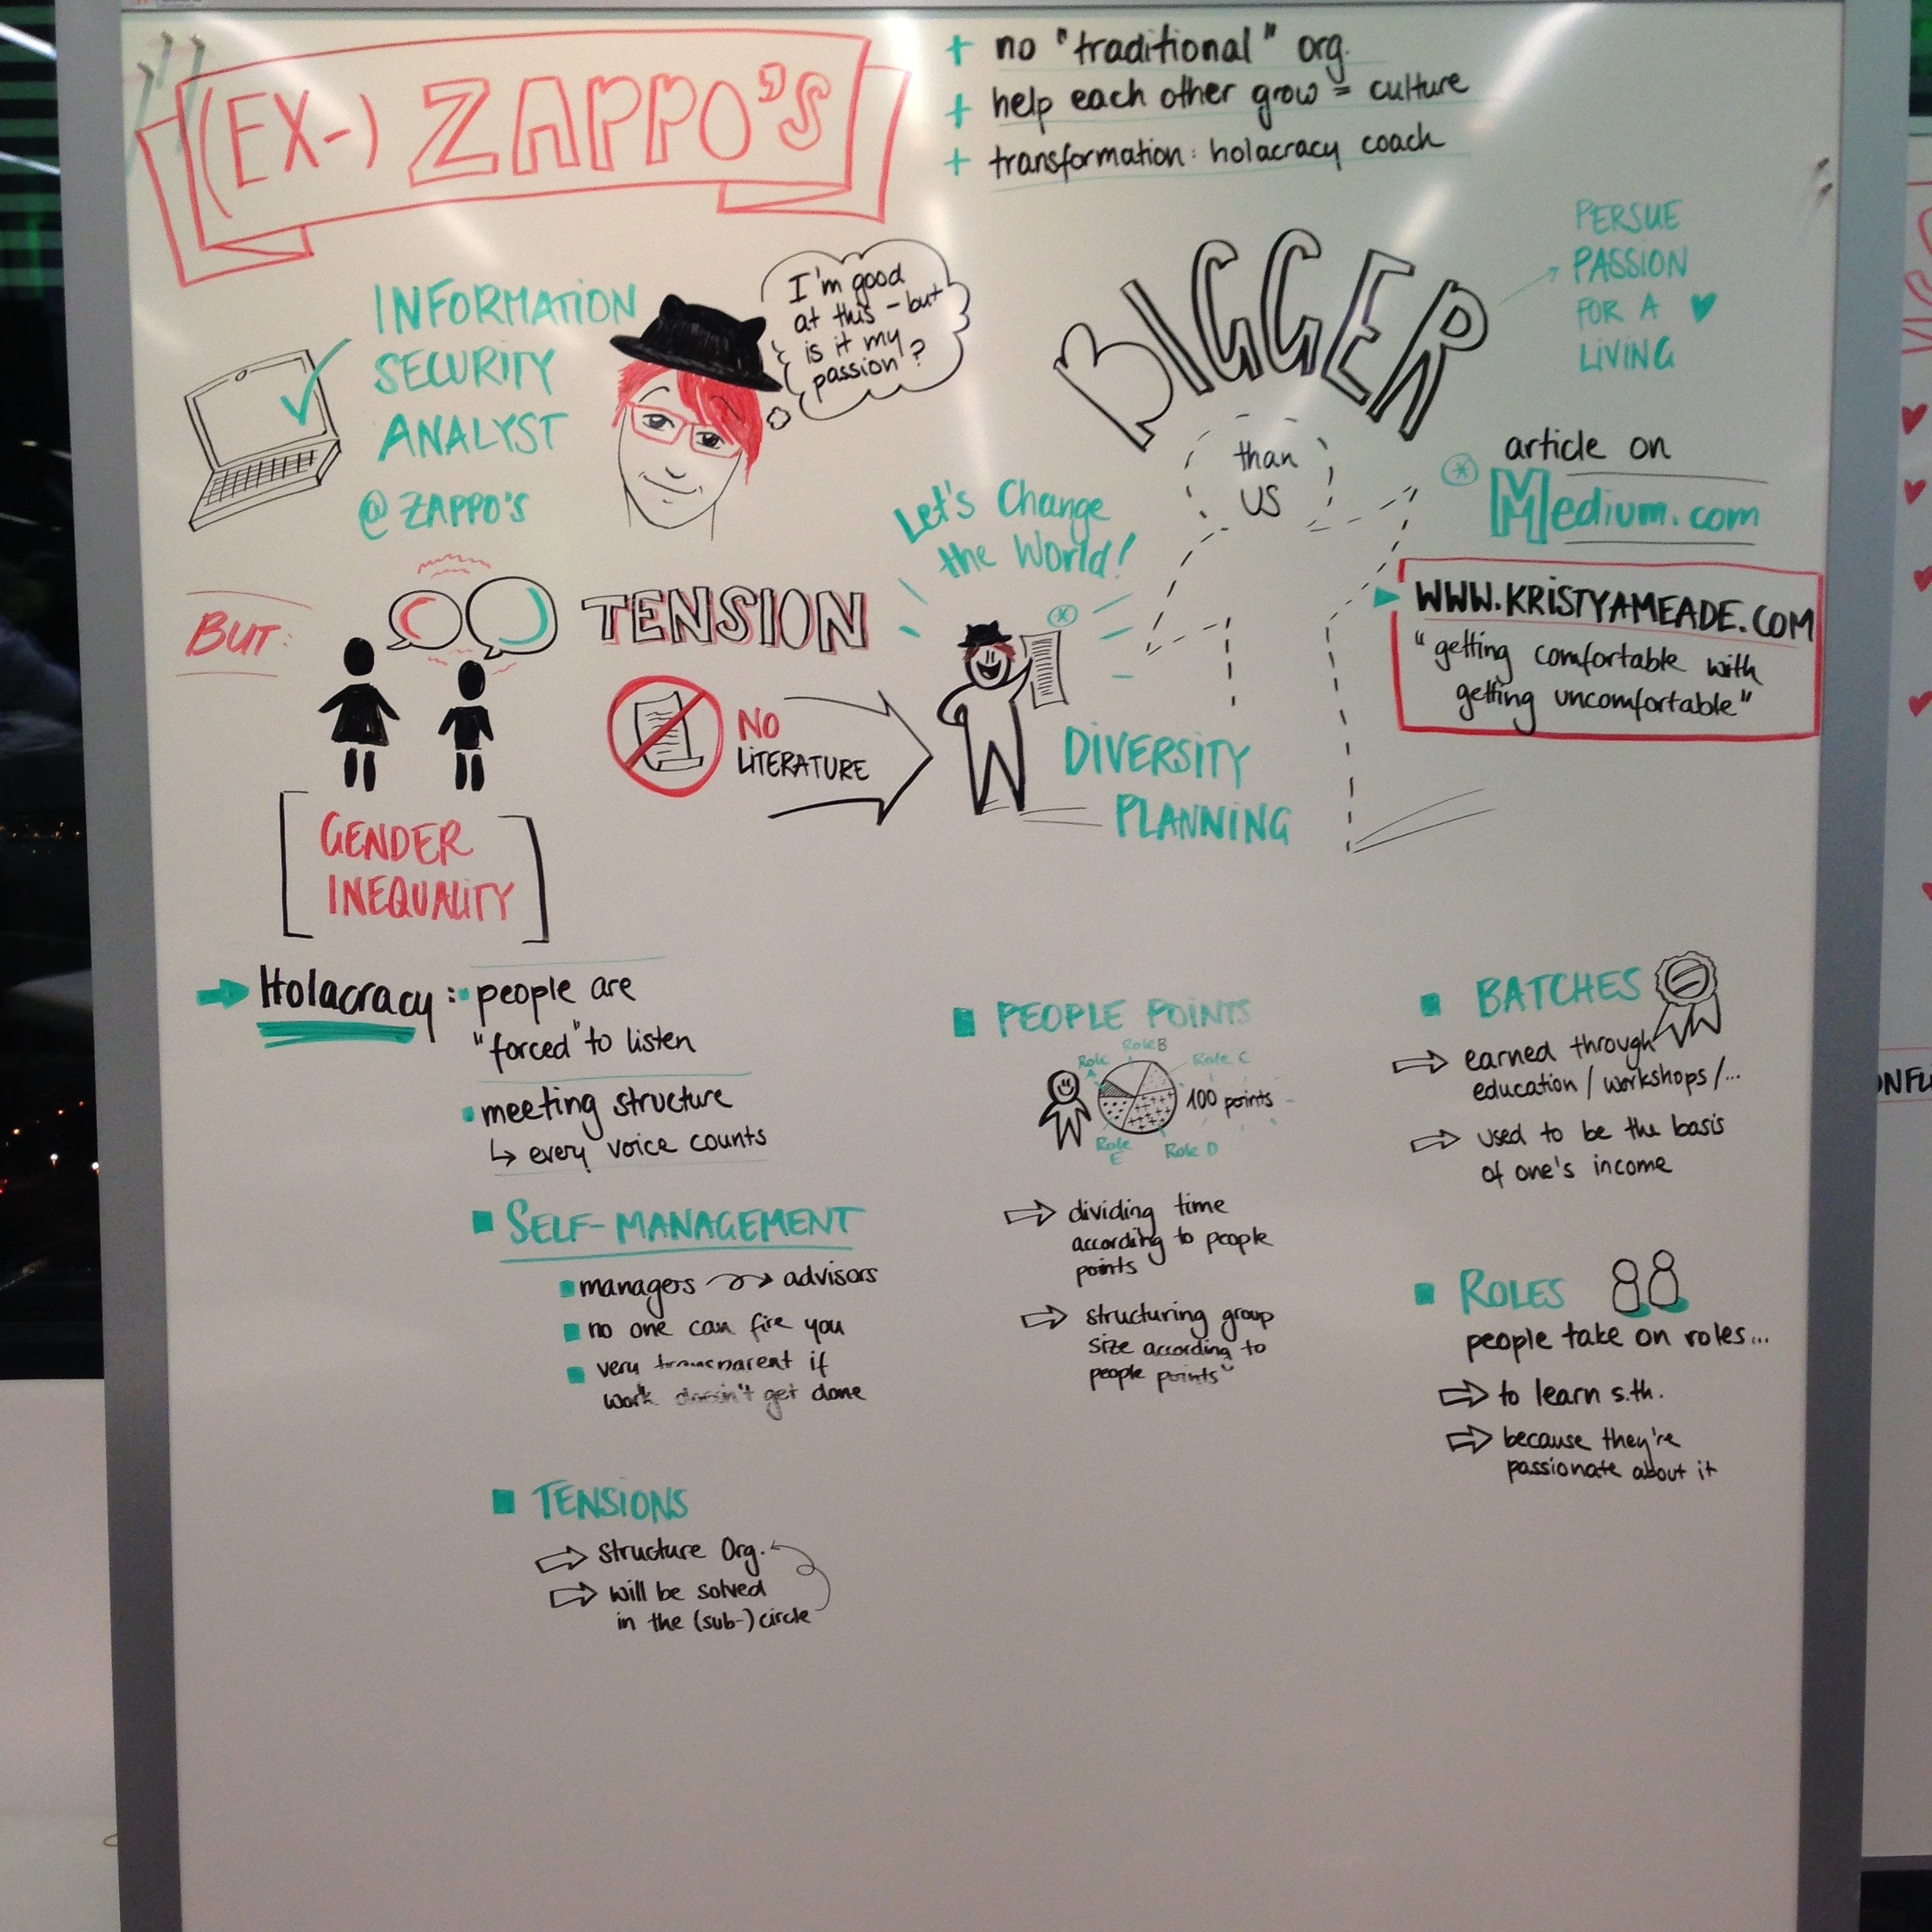 (EX-) ZAPPO'S
+ no "traditional" org.
+ help each other grow = culture
+ transformation: holacracy coach
INFORMATION
SECURITY
ANALYST
@ ZAPPO'S
I'm good
at this - but
is it my
passion?
BIGGER
than
US
PERSUE
PASSION
FOR A ♥
LIVING
article on
Medium.com
WWW.KRISTYAMEADE.COM
"getting comfortable with
getting uncomfortable"
Let's Change
the World!
BUT:
TENSION
NO
LITERATURE
DIVERSITY
PLANNING
[GENDER
INEQUALITY]
Holacracy: people are
"forced" to listen
meeting structure
↳ every voice counts
SELF-MANAGEMENT
managers → advisors
no one can fire you
very transparent if
work doesn't get done
TENSIONS
⇒ structure Org.
⇒ will be solved
in the (sub-) circle
PEOPLE POINTS
Role A
Role B
Role C
100 points
Role E
Role D
⇒ dividing time
according to people
points
⇒ structuring group
size according to
people points"
BATCHES
⇒ earned through
education / workshops /...
⇒ used to be the basis
of one's income
ROLES
people take on roles...
⇒ to learn s.th.
⇒ because they're
passionate about it